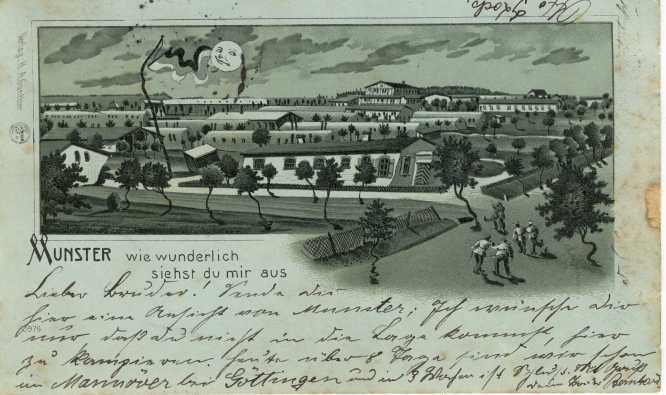 Verlag H.
MUNSTER wie wunderlich
siehst du mir aus
Lieber Bruder! Sende dir
hier eine Ansicht von Munster; Ich wünsche dir
nur daß du nicht in die Lage kommst, hier
zu kampieren. Heute über 8 Tage sind wir schon
im Mannöver bei Göttingen und in 3 Wochen ist Schluss.
dein Bruder